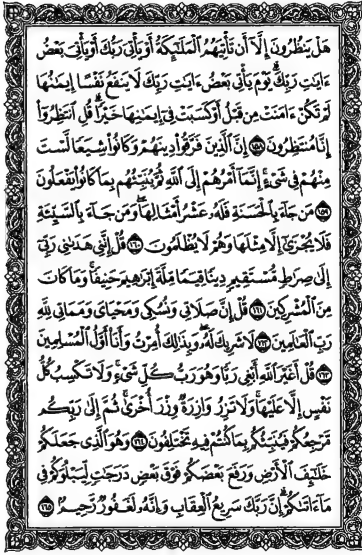 هَلْ يَنظُرُونَ إِلَّا أَن تَأْتِيَهُمُ الْمَلَٰٓئِكَةُ أَوْ يَأْتِيَ رَبُّكَ أَوْ يَأْتِيَ بَعْضُ
ءَايَٰتِ رَبِّكَ ۗ يَوْمَ يَأْتِي بَعْضُ ءَايَٰتِ رَبِّكَ لَا يَنفَعُ نَفْسًا إِيمَٰنُهَا
لَمْ تَكُنْ ءَامَنَتْ مِن قَبْلُ أَوْ كَسَبَتْ فِيٓ إِيمَٰنِهَا خَيْرًا ۗ قُلِ انتَظِرُوٓا۟
إِنَّا مُنتَظِرُونَ ١٥٨ إِنَّ الَّذِينَ فَرَّقُوا۟ دِينَهُمْ وَكَانُوا۟ شِيَعًا لَّسْتَ
مِنْهُمْ فِي شَيْءٍ ۚ إِنَّمَآ أَمْرُهُمْ إِلَى اللَّهِ ثُمَّ يُنَبِّئُهُم بِمَا كَانُوا۟ يَفْعَلُونَ
١٥٩ مَن جَآءَ بِالْحَسَنَةِ فَلَهُۥ عَشْرُ أَمْثَالِهَا ۖ وَمَن جَآءَ بِالسَّيِّئَةِ
فَلَا يُجْزَىٰٓ إِلَّا مِثْلَهَا وَهُمْ لَا يُظْلَمُونَ ١٦٠ قُلْ إِنَّنِي هَدَىٰنِي رَبِّيٓ
إِلَىٰ صِرَٰطٍ مُّسْتَقِيمٍ دِينًا قِيَمًا مِّلَّةَ إِبْرَٰهِيمَ حَنِيفًا ۚ وَمَا كَانَ
مِنَ الْمُشْرِكِينَ ١٦١ قُلْ إِنَّ صَلَاتِي وَنُسُكِي وَمَحْيَايَ وَمَمَاتِي لِلَّهِ
رَبِّ الْعَٰلَمِينَ ١٦٢ لَا شَرِيكَ لَهُۥ ۖ وَبِذَٰلِكَ أُمِرْتُ وَأَنَا۠ أَوَّلُ الْمُسْلِمِينَ
١٦٣ قُلْ أَغَيْرَ اللَّهِ أَبْغِي رَبًّا وَهُوَ رَبُّ كُلِّ شَيْءٍ ۚ وَلَا تَكْسِبُ كُلُّ
نَفْسٍ إِلَّا عَلَيْهَا ۚ وَلَا تَزِرُ وَازِرَةٌ وِزْرَ أُخْرَىٰ ۚ ثُمَّ إِلَىٰ رَبِّكُم
مَّرْجِعُكُمْ فَيُنَبِّئُكُم بِمَا كُنتُمْ فِيهِ تَخْتَلِفُونَ ١٦٤ وَهُوَ الَّذِي جَعَلَكُمْ
خَلَٰٓئِفَ الْأَرْضِ وَرَفَعَ بَعْضَكُمْ فَوْقَ بَعْضٍ دَرَجَٰتٍ لِّيَبْلُوَكُمْ فِي
مَآ ءَاتَىٰكُمْ ۗ إِنَّ رَبَّكَ سَرِيعُ الْعِقَابِ وَإِنَّهُۥ لَغَفُورٌ رَّحِيمٌۢ ١٦٥